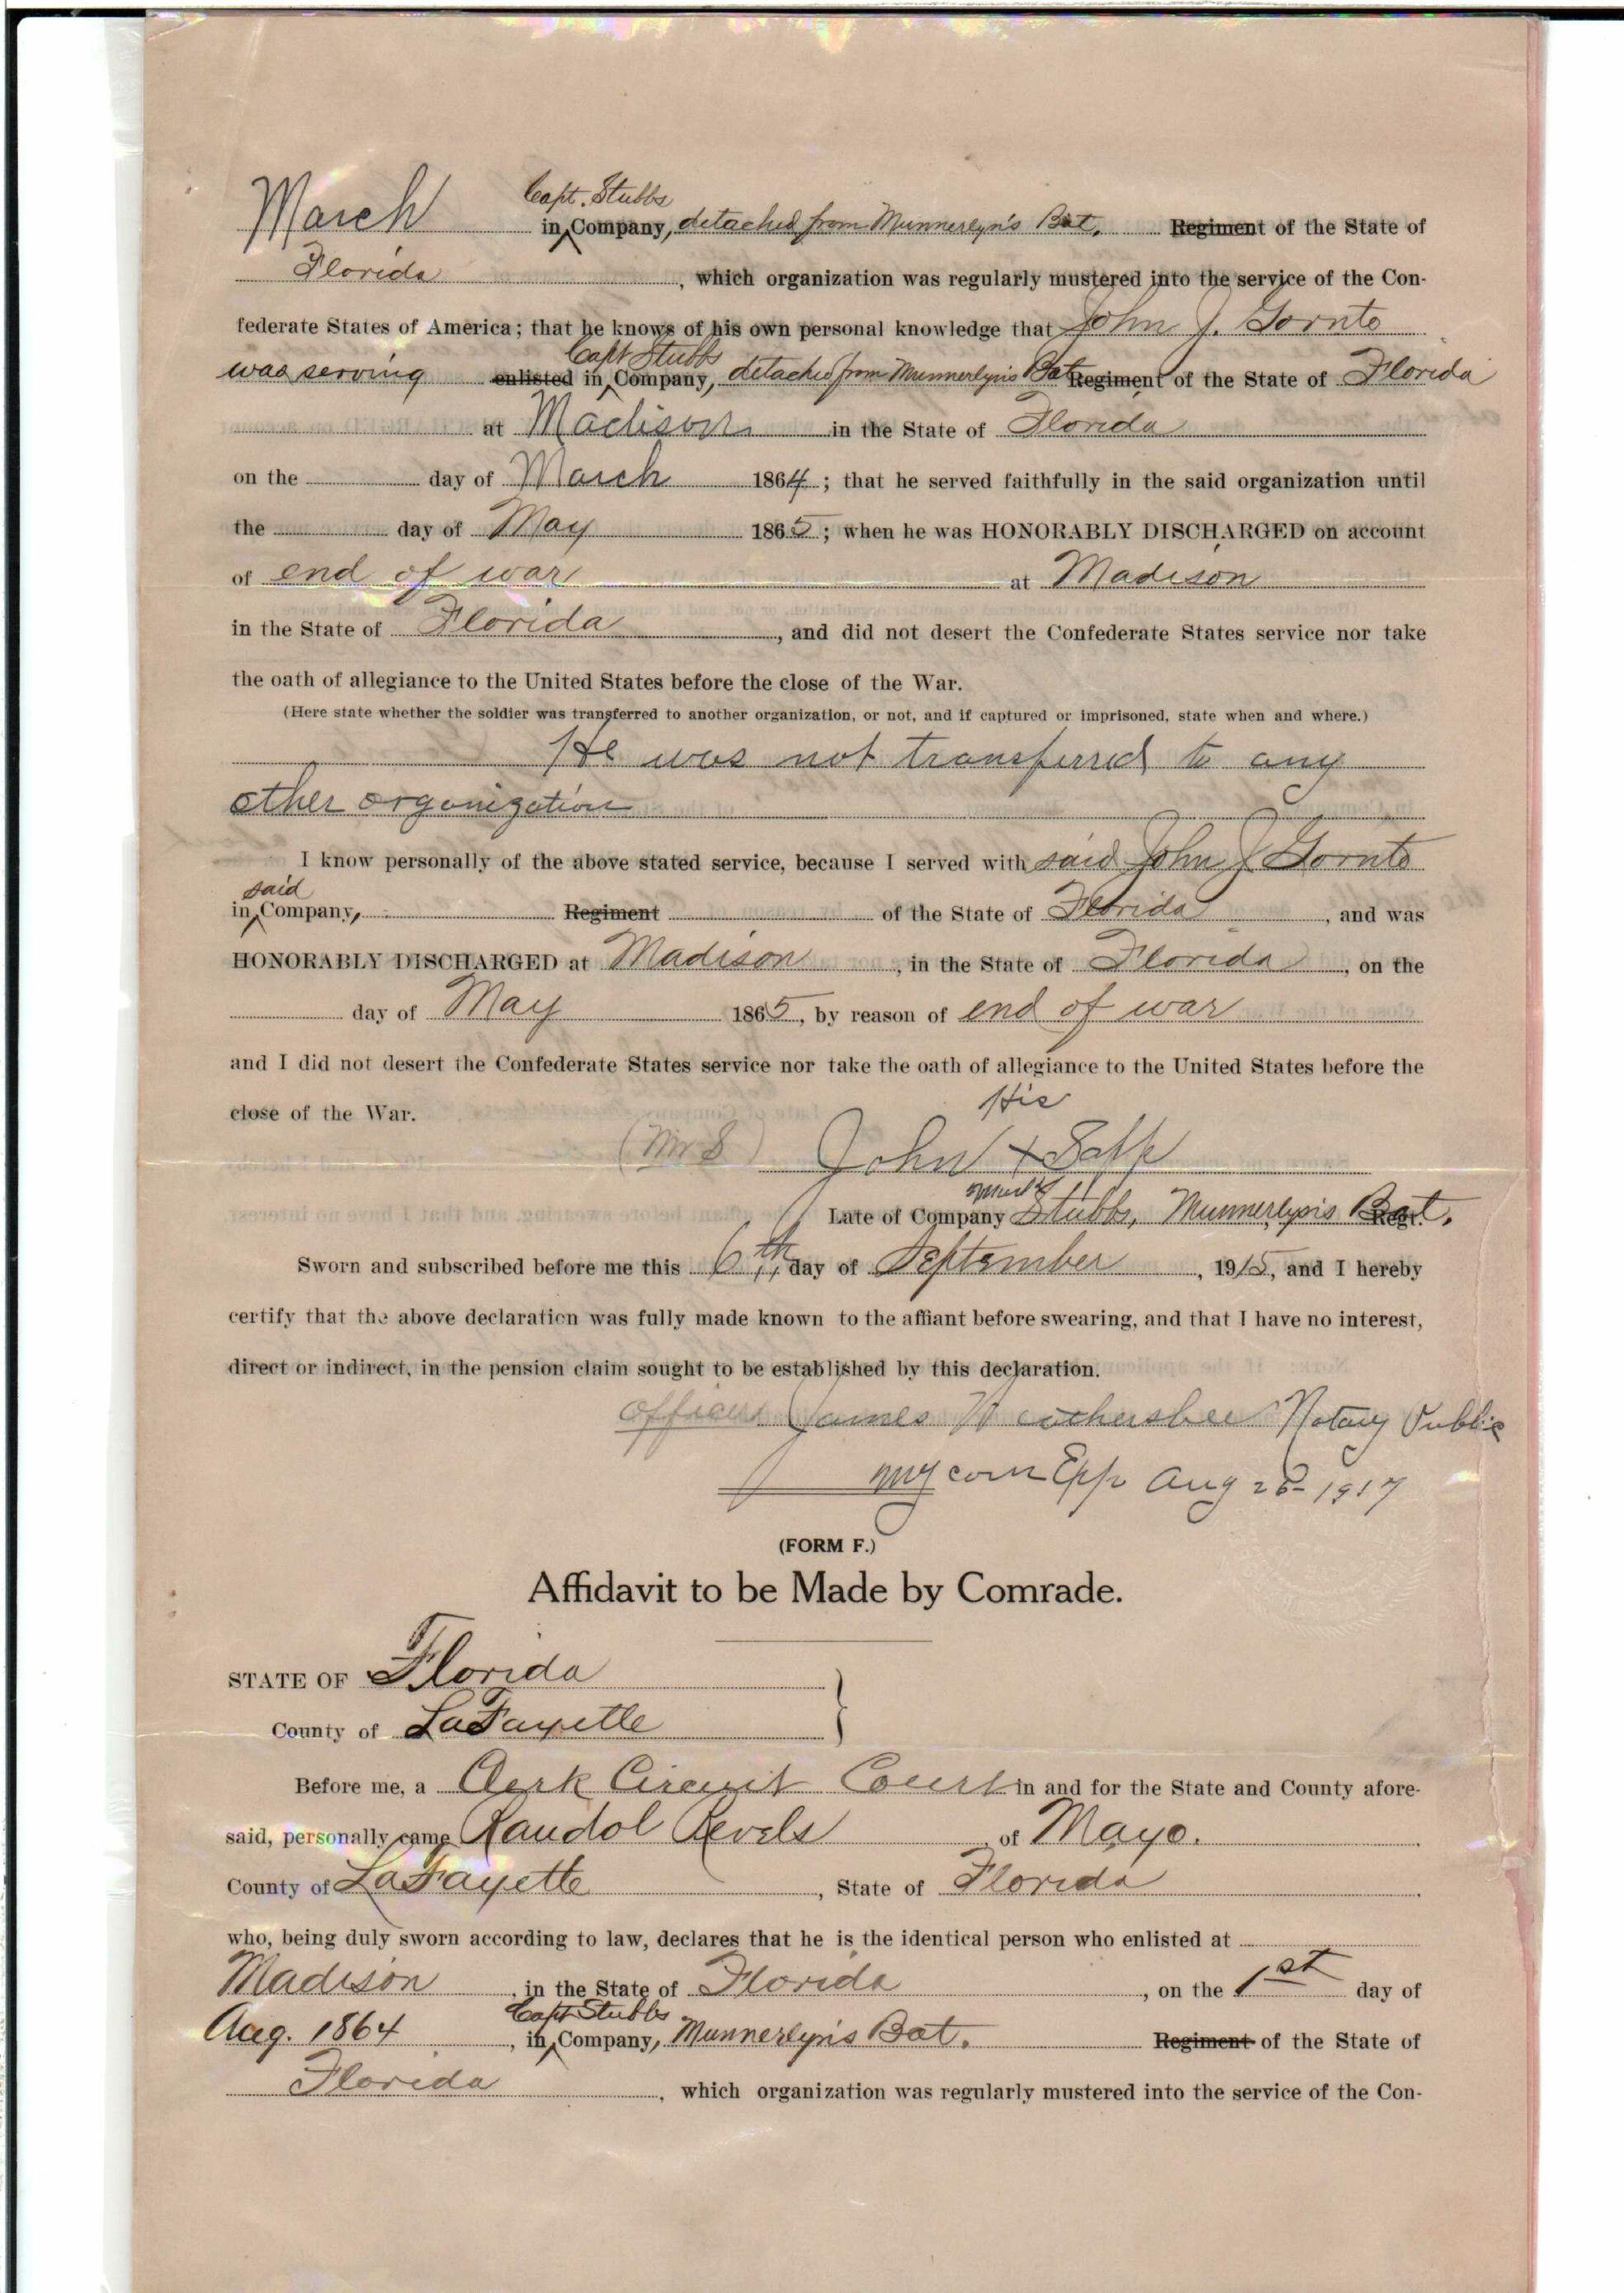 March Capt. Stubbs in Company, detached from Munnerlyn's Bat. Regiment of the State of
Florida, which organization was regularly mustered into the service of the Con-
federate States of America; that he knows of his own personal knowledge that John J. Gornto
was serving enlisted in Capt Stubbs Company, detached from Munnerlyn's Bat Regiment of the State of Florida
at Madison in the State of Florida
on the day of March 1864; that he served faithfully in the said organization until
the day of May 1865; when he was HONORABLY DISCHARGED on account
of end of war at Madison
in the State of Florida, and did not desert the Confederate States service nor take
the oath of allegiance to the United States before the close of the War.
(Here state whether the soldier was transferred to another organization, or not, and if captured or imprisoned, state when and where.)
He was not transferred to any
other organization
I know personally of the above stated service, because I served with said John J Gornto
in said Company, Regiment of the State of Florida, and was
HONORABLY DISCHARGED at Madison, in the State of Florida, on the
day of May 1865, by reason of end of war
and I did not desert the Confederate States service nor take the oath of allegiance to the United States before the
close of the War.
His
John X Sapp
mark
Late of Company Stubbs, Munnerlyn's Bat. Regt.
Sworn and subscribed before me this 6th day of September, 1915, and I hereby
certify that the above declaration was fully made known to the affiant before swearing, and that I have no interest,
direct or indirect, in the pension claim sought to be established by this declaration.
James Weathersbee Notary Public
my com Exp Aug 28 1917
(FORM F.)
Affidavit to be Made by Comrade.
STATE OF Florida
County of LaFayette
Before me, a Clerk Circuit Court in and for the State and County afore-
said, personally came Randol Revels of Mayo.
County of LaFayette, State of Florida
who, being duly sworn according to law, declares that he is the identical person who enlisted at
Madison, in the State of Florida, on the 1st day of
Aug. 1864, in Capt Stubbs Company, Munnerlyn's Bat. Regiment of the State of
Florida, which organization was regularly mustered into the service of the Con-